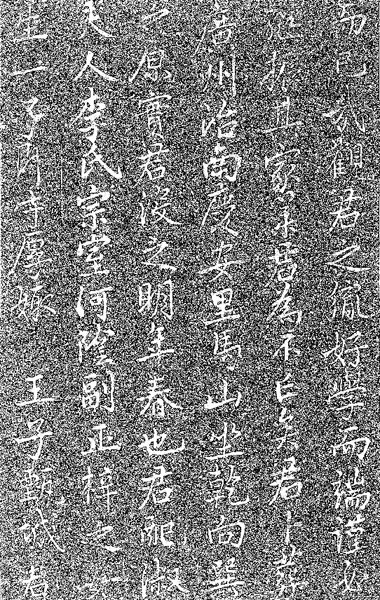 而已哉觀君之胤好學而端謹必
能振其家君為不亡矣君卜葬
廣州治南慶安里馬山坐乾向巽
之原實君沒之明年春也君配淑
夫人李氏宗室河陰副正梓之女
生一厚源王子甄城君